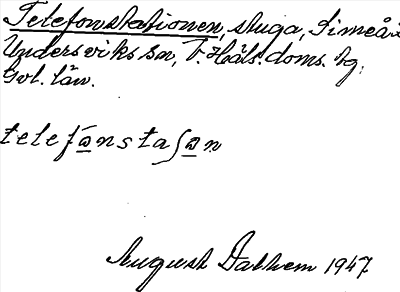 Telefonstationen, stuga, Simeå i
Undersviks sn, V. Häls. doms. hg,
Gvl. län.
telefånstaʃɷn
August Dalhem 1947